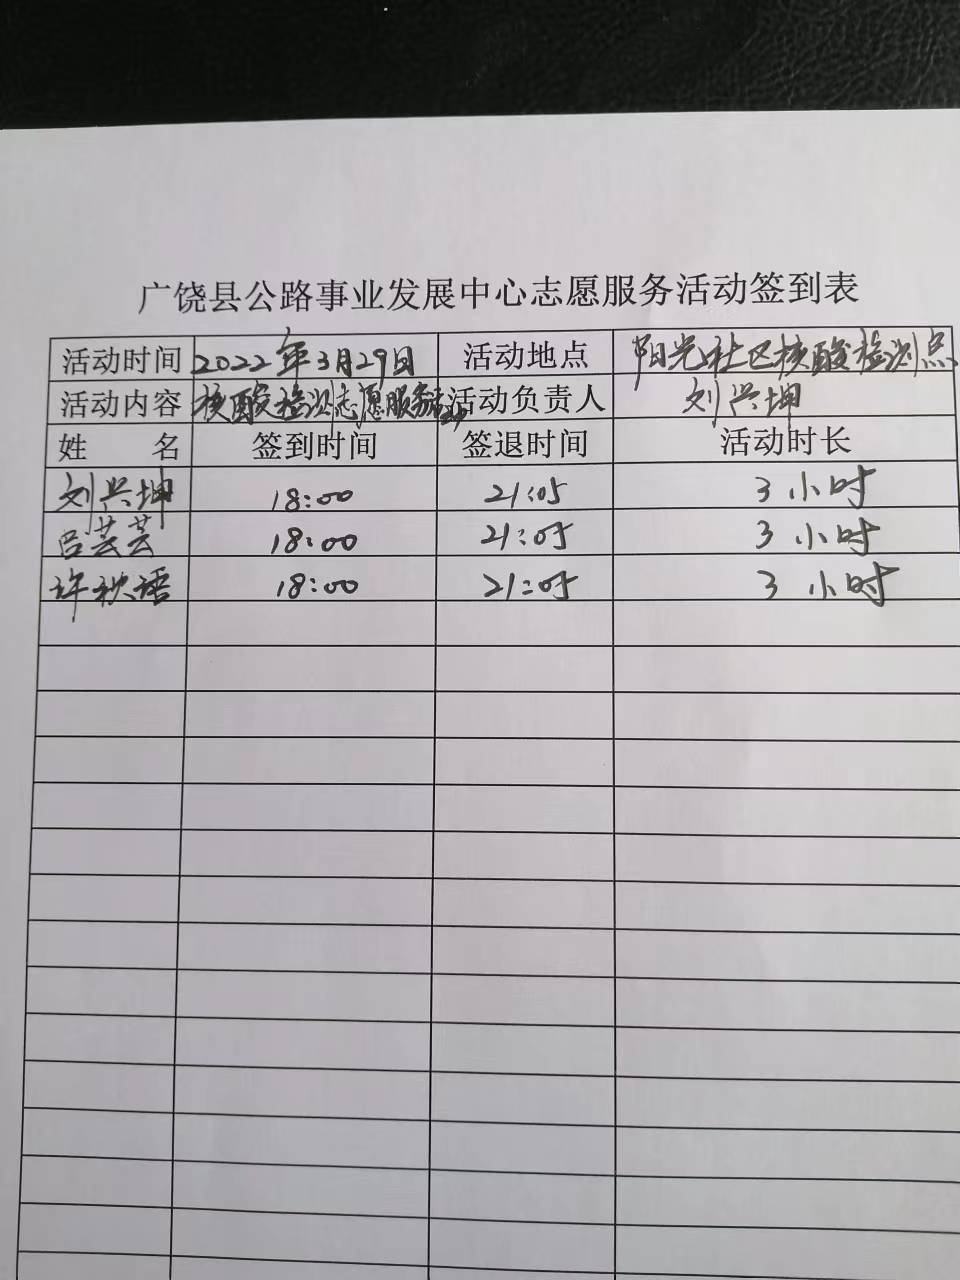 广饶县公路事业发展中心志愿服务活动签到表
活动时间 2022年3月29日 活动地点 阳光社区核酸检测点
活动内容 核酸检测志愿服务活动 活动负责人 刘兴坤
姓 名 签到时间 签退时间 活动时长
刘兴坤 18:00 21:05 3小时
吕芸芸 18:00 21:05 3小时
许秋语 18:00 21:05 3小时